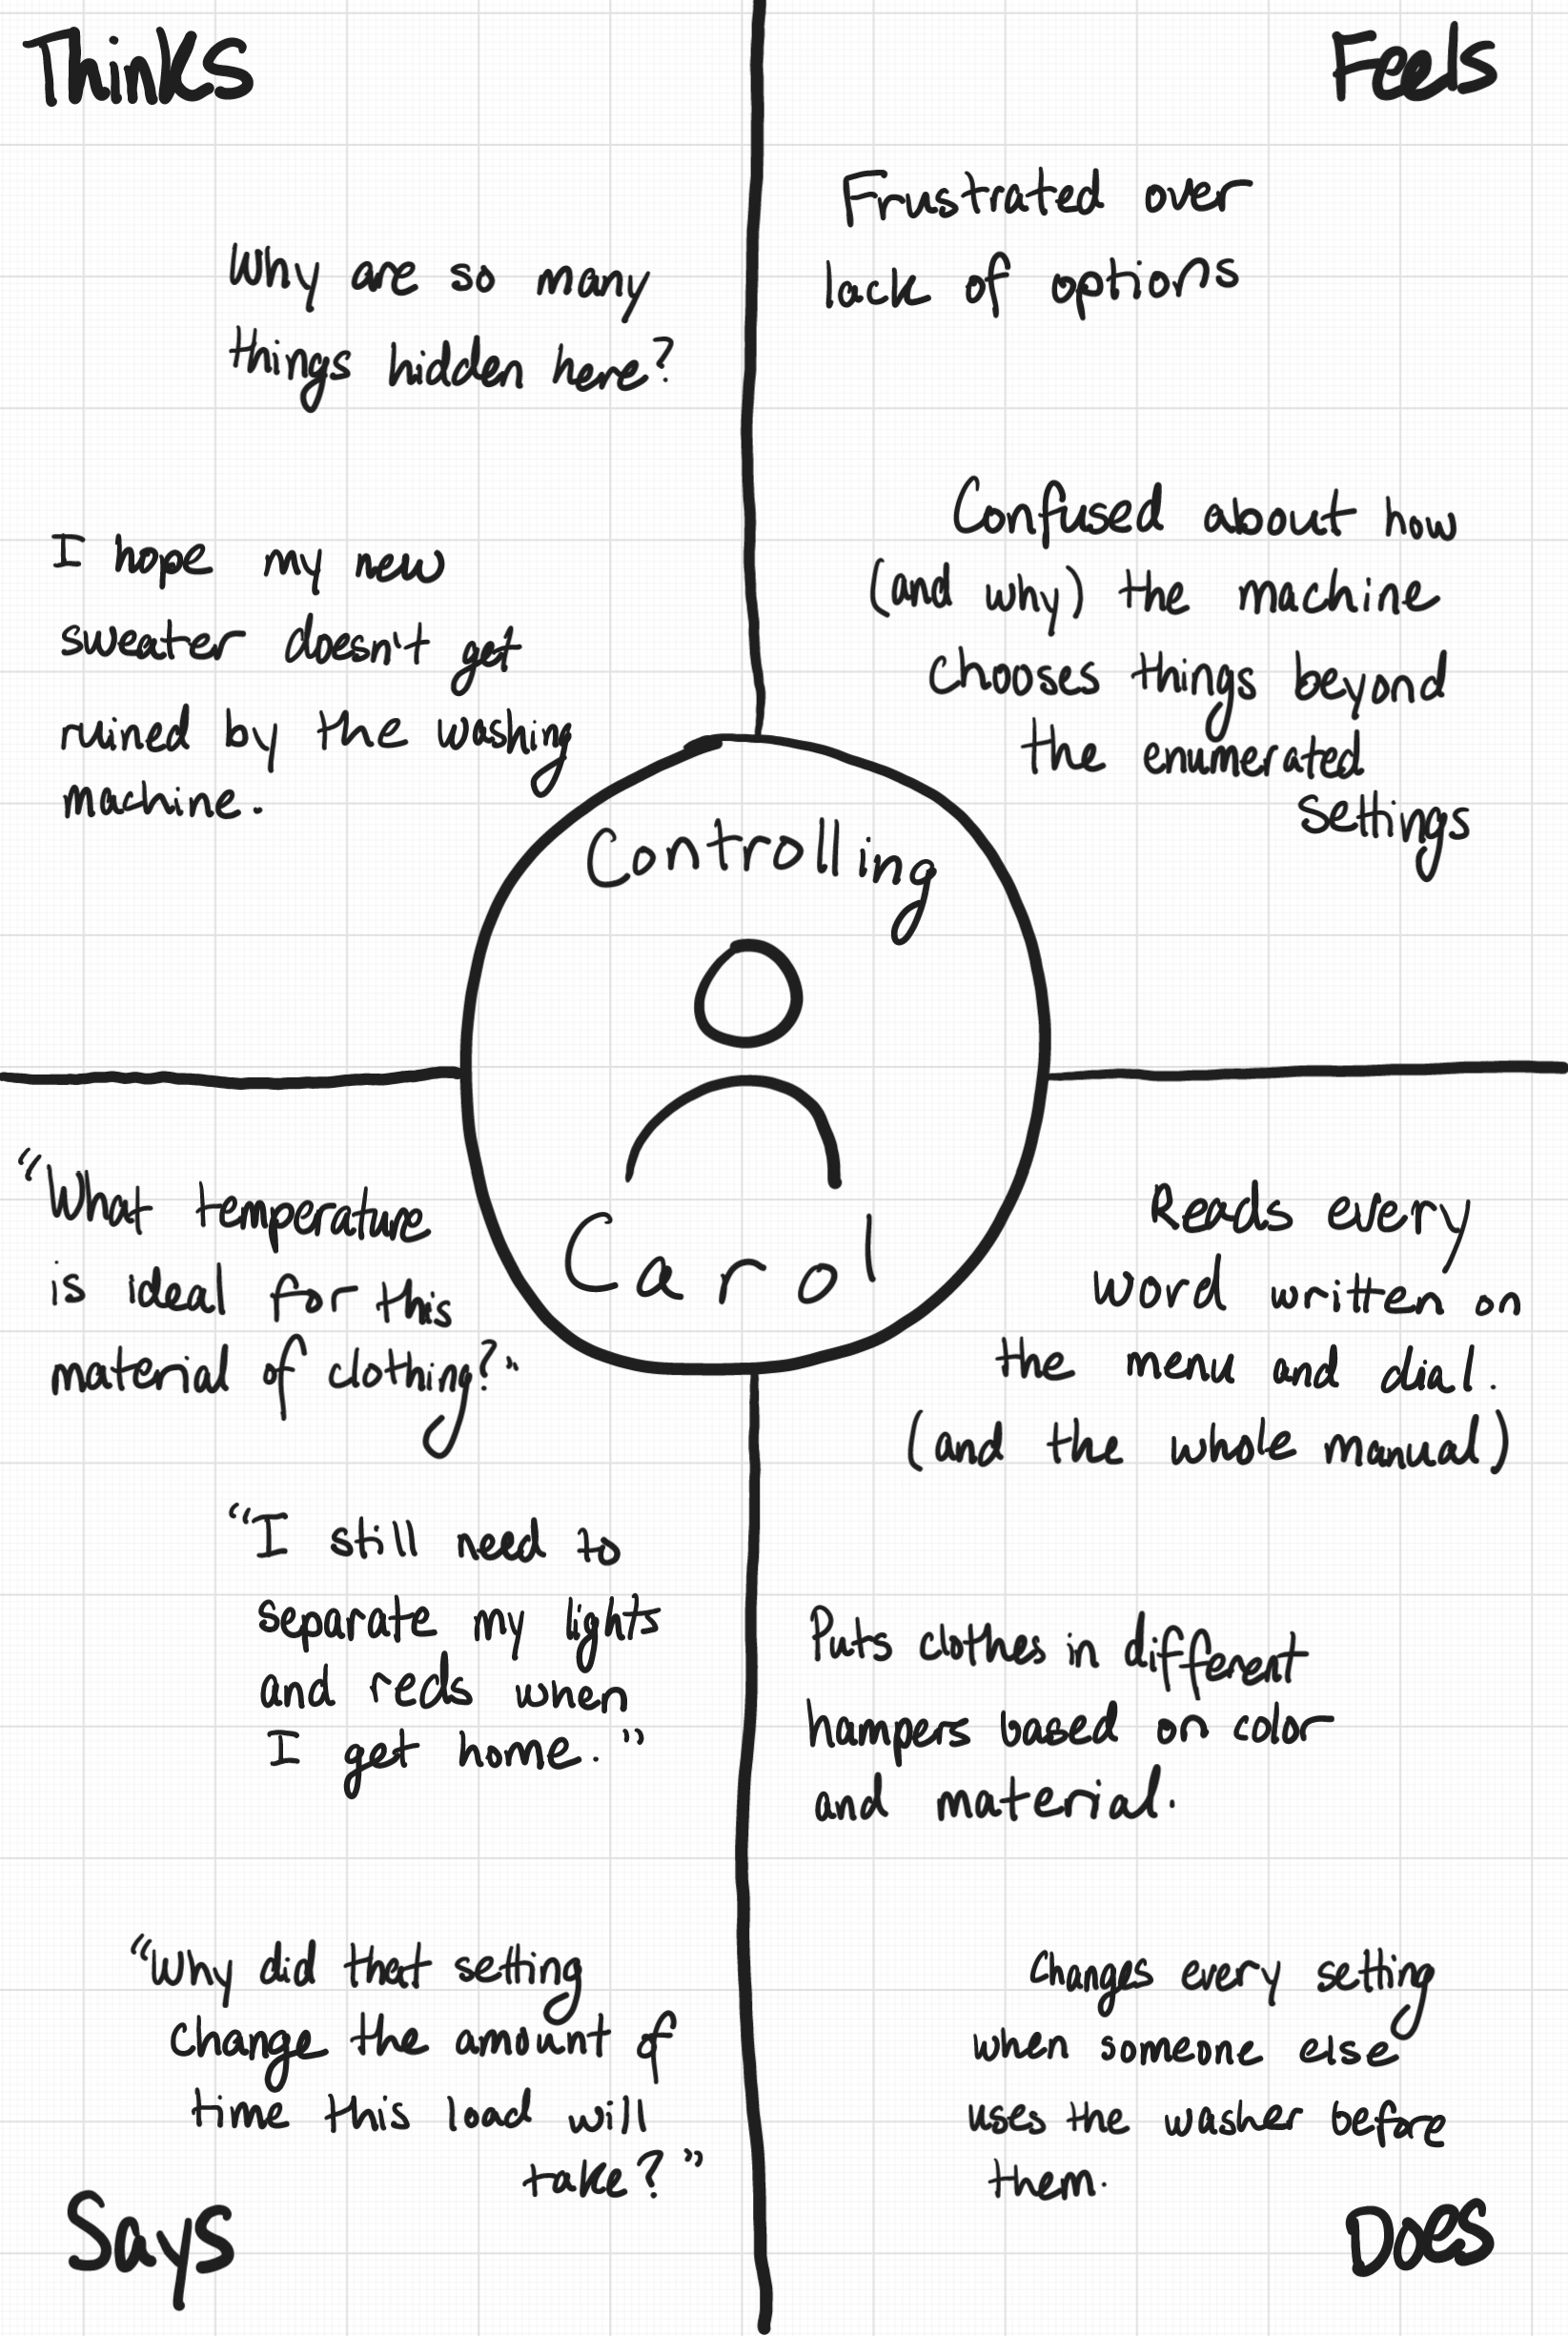 Thinks
Why are so many
things hidden here?
I hope my new
sweater doesn't get
ruined by the washing
machine.
Feels
Frustrated over
lack of options
Confused about how
(and why) the machine
chooses things beyond
the enumerated
settings
Controlling
Carol
"What temperature
is ideal for this
material of clothing?"
"I still need to
separate my lights
and reds when
I get home."
"Why did that setting
change the amount of
time this load will
take?"
Says
Reads every
word written on
the menu and dial.
(and the whole manual)
Puts clothes in different
hampers based on color
and material.
Changes every setting
when someone else
uses the washer before
them.
Does